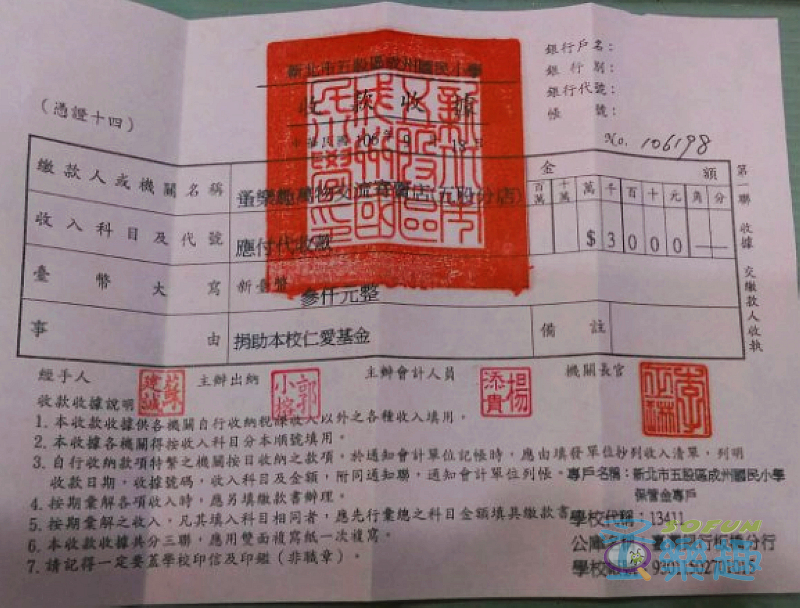 新北市五股區成州國民小學
收款收據
中華民國106年9月18日
(憑證十四)
銀行戶名：
銀行別：
銀行代號：
帳號：
No. 106198
繳款人或機關名稱
金額
百萬 十萬 萬 千 百 十 元 角 分
收入科目及代號
應付代收款
$3000
臺幣大寫
新臺幣
參仟元整
事由
捐助本校仁愛基金
備註
第一聯 收據 交繳款人收執
經手人
主辦出納
主辦會計人員
機關長官
收款收據說明
1. 本收款收據供各機關自行收納稅課收入以外之各種收入填用。
2. 本收款收據各機關得按收入科目分本順號填用。
3. 自行收納款項特繁之機關按日收納之款項。於通知會計單位記帳時，應由填發單位抄列收入清單，列明
收款日期，收據號碼，收入科目及金額，附同通知聯，通知會計單位列帳。
4. 按期彙解各項收入時，應另填繳款書辦理。
5. 按期彙解之收入，凡其填入科目相同者，應先行彙總之科目金額填具繳款書
6. 本收款收據共分三聯，應用雙面複寫紙一次複寫。
7. 請記得一定要蓋學校印信及印鑑（非職章）。
專戶名稱：新北市五股區成州國民小學
保管金專戶
學校代碼：13411
SOFUN